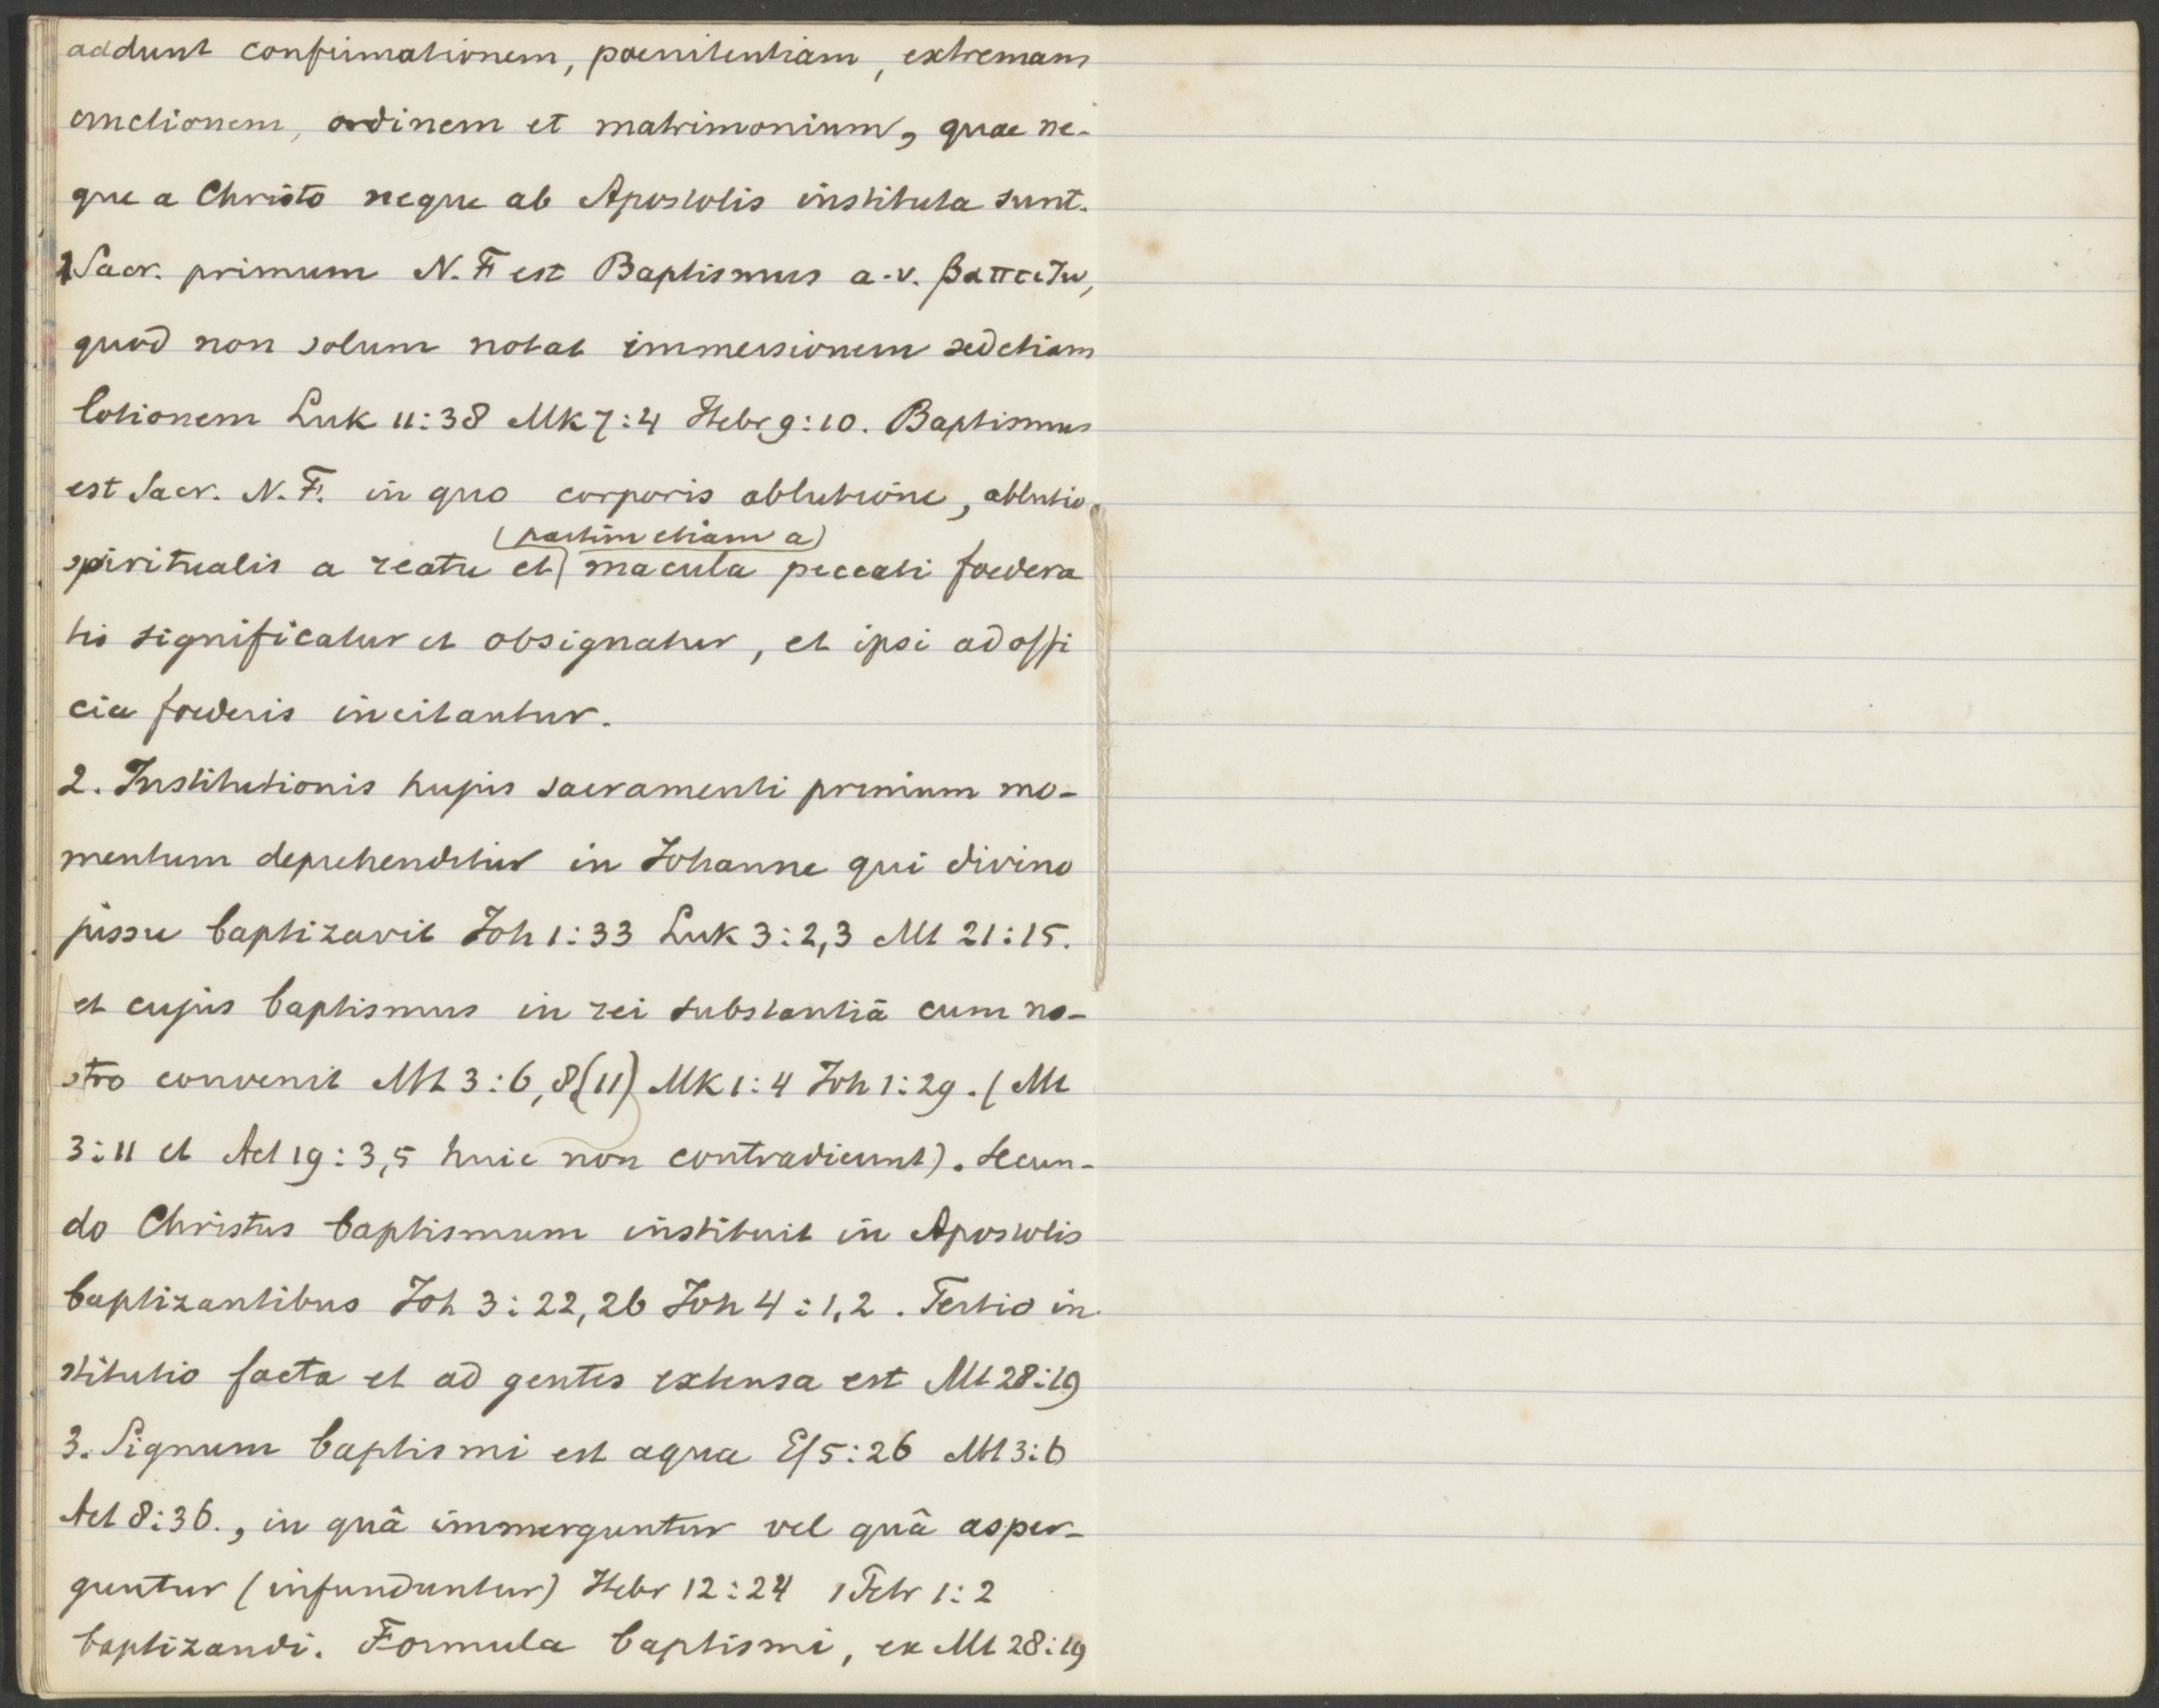 addunt confirmationem, poenitentiam, extremam
unctionem, ordinem et matrimonium, quae ne-
que a Christo neque ab Apostolis instituta sunt.
1 Sacr. primum N. F. est Baptismus a. v. βαπτιζω,
quod non solum notat immersionem sed etiam
lotionem Luk 11:38 Mk 7:4 Hebr 9:10. Baptismus
est Sacr. N. F. in quo corporis ablutione, ablutio
(partim etiam a)
spiritualis a reatu et macula peccati foedera
tis significatur et obsignatur, et ipsi ad offi
cia foederis incitantur.
2. Institutionis hujus sacramenti primum mo-
mentum deprehenditur in Johanne qui divino
jussu baptizavit Joh 1:33 Luk 3:2,3 Mt 21:15.
et cujus baptismus in rei substantiâ cum no-
stro convenit Mt 3:6,8(11) Mk 1:4 Joh 1:29. (Mt
3:11 et Act 19:3,5 huic non contradicunt). Secun-
do Christus baptismum instituit in Apostolis
baptizantibus Joh 3:22,26 Joh 4:1,2. Tertio in
stitutio facta et ad gentes extensa est Mt 28:19
3. Signum baptismi est aqua Ef 5:26 Mt 3:6
Act 8:36., in quâ immerguntur vel quâ asper-
guntur (infunduntur) Hebr 12:24 1 Petr 1:2
baptizandi. Formula baptismi, ex Mt 28:19